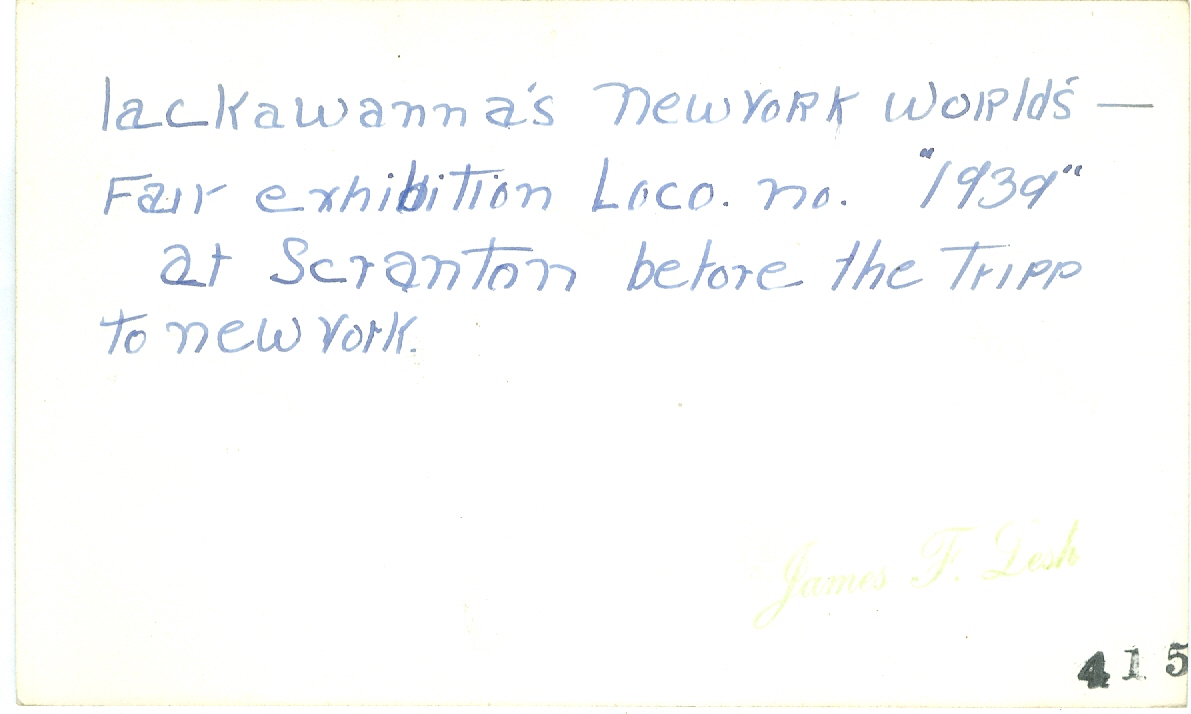 lackawanna's new YORK WORlds —
Fair exhibition Loco. no. "1939"
at Scranton before the Tripp
to new York.
James F. Lesh
415